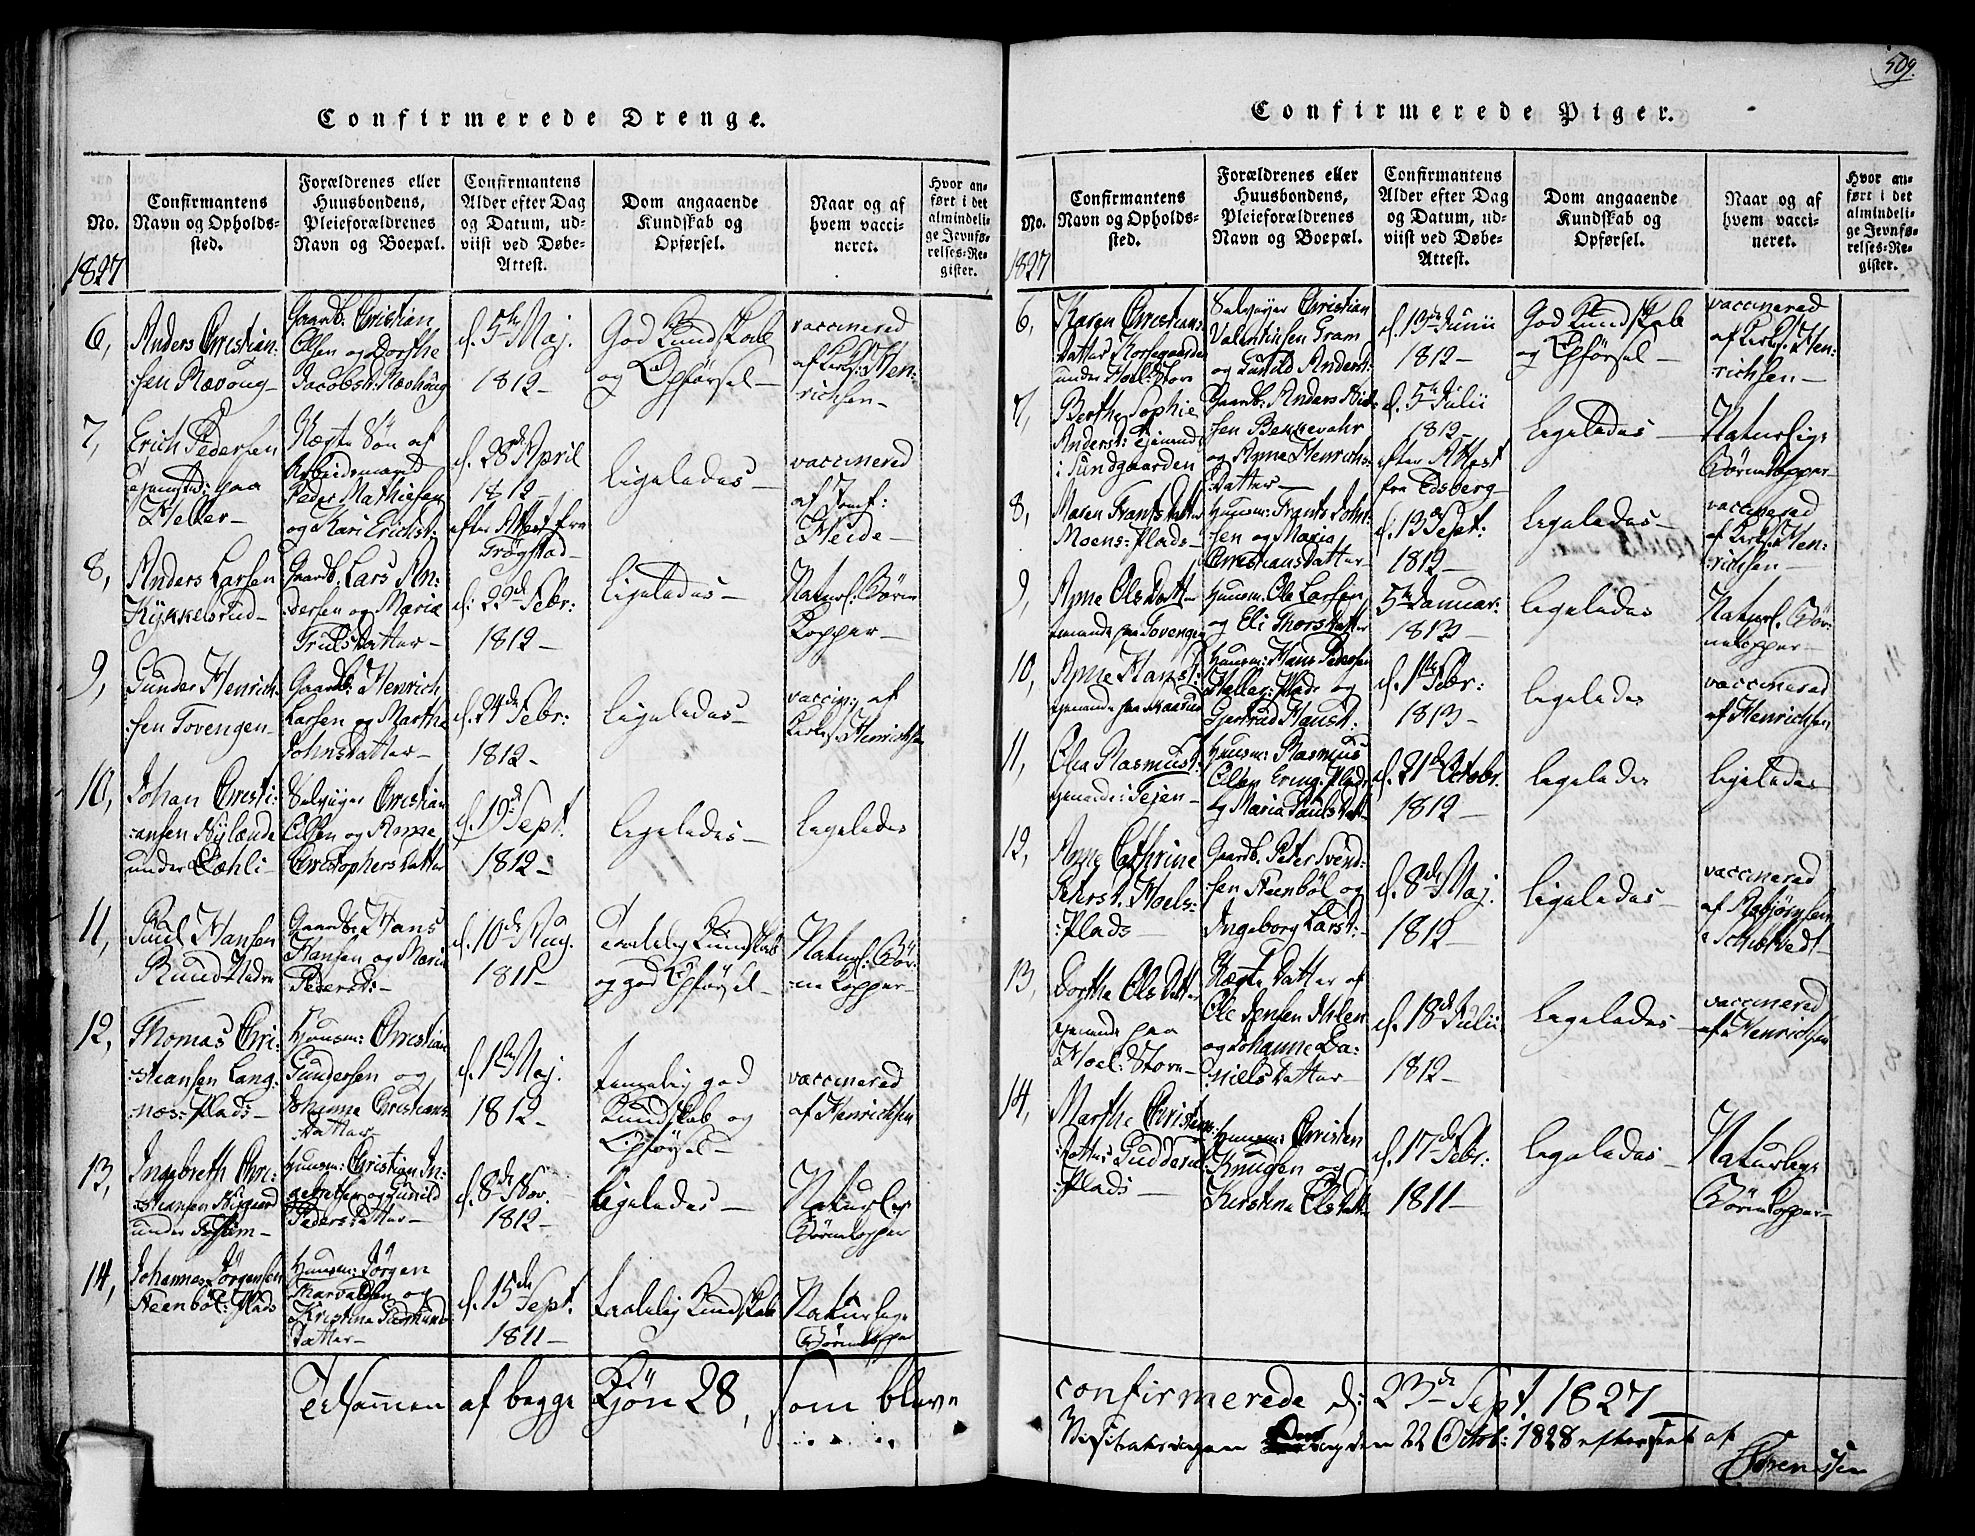 509.
Confirmerede Drenge.
No.
1827
Confirmantens
Navn og Opholds-
sted.
Forældrenes eller
Huusbondens,
Pleieforældrenes
Navn og Boepæl.
Confirmantens
Alder efter Dag
og Datum, ud-
viist ved Døbe-
Attest.
Dom angaaende
Kundskab og
Opførsel.
Naar og af
hvem vacci-
neret.
Hvor an-
ført i det
almindeli-
ge Jevnfø-
relses-Re-
gister.
6,
Anders Christian:
sen Ravoug
Gaardb: Christian
Olsen og Dorthe
Jacobsd: Ravhoug
d. 5te Maj.
1812
God Kundskab
og Opførsel
vaccinered
af Hen-
richsen
7,
Erich Pedersen
paa
Heller
Uægte Søn af
Arbeidsmand
Peder Mathiesen
og Kari Erichsd:
d. 28de April
1812
efter Attest fra
Trøgstad
ligeledes
vaccinered
af
Heide
8,
Anders Larsen
Kykkelsrud
Gaardb. Lars An:
dersen og Maria
Trulsdatter
d: 22de Febr:
1812
ligeledes
Naturl: Børne
Kopper
9,
Gunder Henrich:
sen Tovengen
Gaardb: Henrich
Larsen og Marthe
Johnsdatter
d. 24de Febr:
1812
ligeledes
vaccin: af
Henrichsen
10,
Johan Christi:
ansen Nylænde
under Dæhli
Selvejer Christian
Olsen og Anne
Christophersdatter
d. 19de Sept.
1812
ligeledes
ligeledes
11,
Poul Hansen
Rund Nedre
Gaardb. Hans
Hansen og Maria
Pedersd:
d. 10de Aug.
1811
Taalelig Kundskab
og god Opførsel
Naturl: Bør-
ne Kopper
12,
Thomas Chri:
stiansen Lang:
næs: Plads
Huusm: Christian
Gundersen og
Johanne Christians:
datter
d. 1ste Maj.
1812
temmelig god
Kundskab og
Opførsel
vaccinered
af Henrichsen
13,
Ingebreth Chri:
stiansen
under
Huusm: Christian In:
gebrethsen og Gunild
Pedersdatter
d. 8de Nov.
1812
ligeledes
Naturlige
Børnekopper
14,
Johannes Jørgensen
Steenbøl: Plads
Huusm: Jørgen
Tharvaldsen og
Kristine Gudmund
datter
d. 15de Sept.
1811
taalelig Kundskab
Naturlige
Børnekopper
Tilsammen af begge Kjøn 28, som bleve
Confirmerede Piger.
No.
1827
Confirmantens
Navn og Opholds-
sted.
Forældrenes eller
Huusbondens,
Pleieforældrenes
Navn og Boepæl.
Confirmantens
Alder efter Dag
og Datum, ud-
viist ved Døbe-
Attest.
Dom angaaende
Kundskab og
Opførsel.
Naar og af
hvem vacci-
neret.
Hvor an-
ført i det
almindeli-
ge Jevnfø-
relses-Re-
gister.
6,
Karen Christians:
datter Korsegaarden
under Hoel: Store
Selvejer Christian
Valentinsen Fram
og Gunild Andersd:
d. 13de Junii
1812
God Kundskab
og Opførsel
vaccinered
af Hen-
richsen
7,
Berthe Sophie
Andersd: tjenende
i Sundgaarden
Gaardb: Anders
sen Bennevahr
og Anne Henrichs
datter
d. 5te Julii
1812
efter Attest
fra Edsberg
ligeledes
Naturlige
Børnekopper
8,
Maren Frantsdatter
Moens: Plads
Huusm: Frants John:
sen og Maria
Christiansdatter
d. 13de Sept:
1812
ligeledes
vaccinered
af Hen-
richsen
9,
Anne Olsdatter
tjenende paa Tovengen
Huusm: Ole Larsen
og Eli Thorsdatter
5te Januar:
1813
ligeledes
Naturl. Bør-
nekopper
10,
Anne Hansd:
tjenende paa
Huusm: Hans Pedersen
Helleg: Plads og
Gjertrud Hansd:
d. 1ste Febr:
1813
ligeledes
vaccinered
af Henrichsen
11,
Olea Rasmusd:
tjenende: Tejen
Huusm: Rasmus
Olsen Plads
og Maria Paulsdatter
d. 21de October
1812
ligeledes
ligeledes
12,
Anne Cathrine
Petersd. Hoels:
Plads
Gaardb. Peter Svend:
sen Steenbøl og
Ingeborg Larsd:
d. 8de Maj
1812
ligeledes
vaccinered
af Asbjørnsen
i Schibstedt
13,
Dorthe Olsdatter
tjenende paa
Hoel: Store
Uægte datter af
Ole Jensen Ahlen
og Johanne Da:
nielsdatter
d. 18de Julii
1812
ligeledes
vaccinered
af Henrichsen
14,
Marthe Christens:
datter Gudderud
Plads
Huusm: Christen
Knudsen og
Kirstine Olsdatter
d. 17de Febr:
1811
ligeledes
Naturlige
Børnekopper
confirmerede d: 23de Sept. 1827
Visitatsdagen den 22 Octob: 1828 efterseet af
Sørenssen